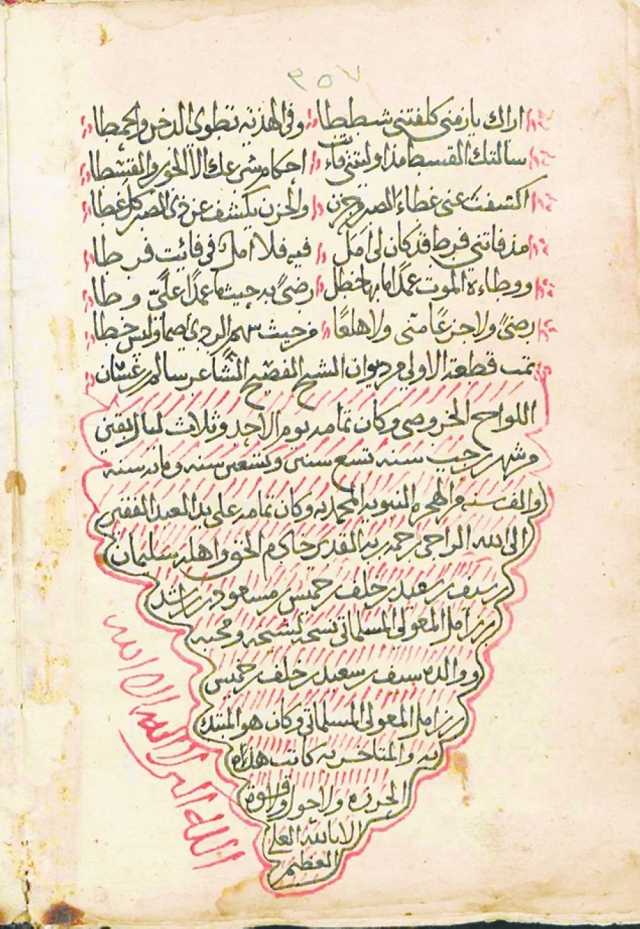 ٣٥٧
اراك يا زمني كلفتني شططا وفي الهدنة تطوى الدخن والحمطا
سالتك القسط مذ اوليتني فات احكام شرعك الا الجور والقسطا
اكشفت عني غطاء الصبر و حزن والحزن يكشف عن ذي الصبر كل غطا
مذ فاتني فرط قد كان لي امل فيه فلا امل في فائت فرطا
ووطاءة الموت عمدًا بها خطل رضىً به حيثما عمدًا عليّ وطا
رضىً ولا جزعًا منى ولا هلعًا من حيث سهم الردى اصمى وليس خطا
تمت قطعة الاولى من ديوان الشيخ الفصيح الشاعر سالم بن غسان
اللواح الخروصي وكان تمامه يوم الاحد وثلاث ليال بقين
من شهر رجب سنة تسع سنين وتسعين سنه ومائه سنة
والف سنه من الهجرة النبوية المحمدية وكان تمامه على يد العبد الفقير
الى الله الراجي رحمة ربه القدير خادم الحق واهله سليمان
بن سيف بن سعيد بن خلف بن خميس بن مسعود بن راشد
بن زامل المعولي المسلماتي نسخه لشيخه ومحبه
ووالده سيف بن سعيد بن خلف بن خميس
بن زامل المعولي المسلماتي وكان هو المبتدي
به والمتاخر به كاتب هذه
الاحرف ولا حول ولا قوة
الا بالله العلي
العظيم
الله اكبر لا اله الا الله